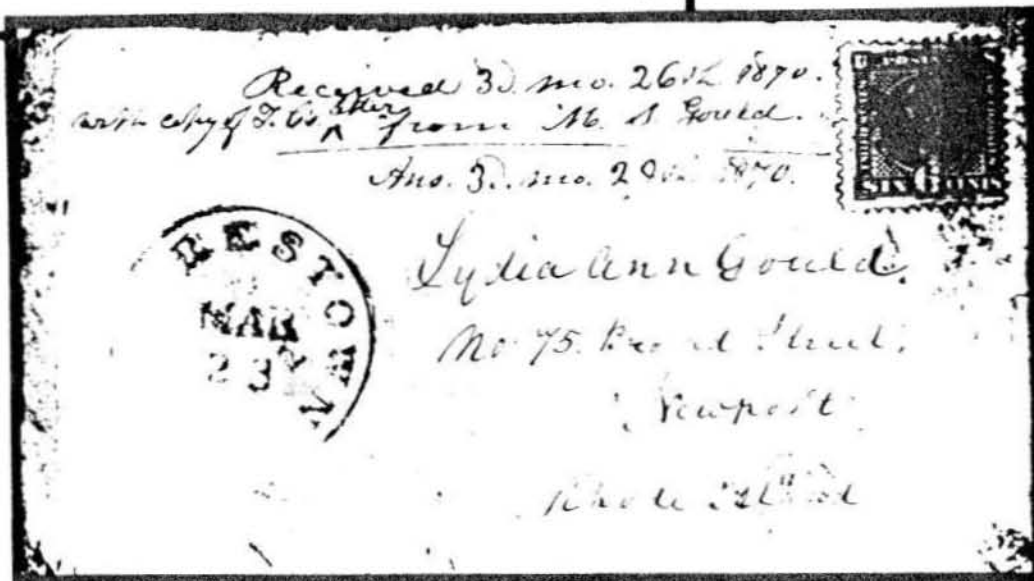 Received 3d. mo. 26th 1870.
with copy of letters
from M. S. Gould.
Ans. 3d. mo. 28th 1870.
SIX CENTS
RESTOWN
MAR
23
Lydia Ann Gould
No 75. Broad Street,
Newport
Rhode Island